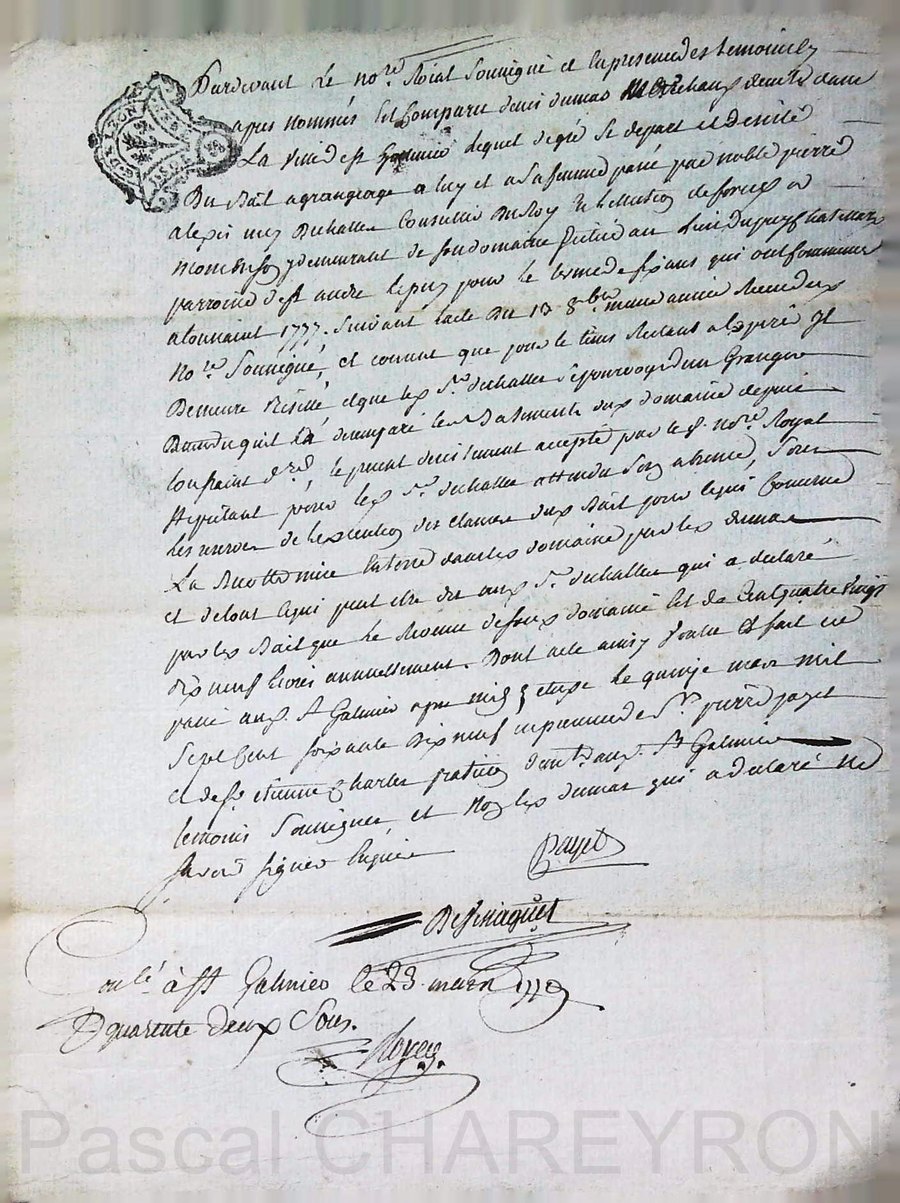 Pardevant Le no.re Roial Soussigné et En presence des temoins Cy
apres nommés Est Comparu denis dumas Marchand demt dans
La ville de St Galmier Lequel de gré Se depart et desiste
Du Bail a grangeage a luy et a sa femme passé par noble pierre
alexis Du Conseiller Du Roy En L'Election de forez a
Montbrison y demeurant de son domaine situé au Lieu Du puy
parroisse de St andré le puy pour le terme de six ans qui ont commencé
a toussaint 1777. Suivant l'acte Du 18 8bre meme année Recu dud
no.re Soussigné, et comme que pour le tems Restant a Expirer Il
Demeure Resilié et que led. Sr. duchallier se pourvoye d'un Granger
dumas qu'il a demparé les Batiments dud domaine depuis
toussaint der, le present desistement accepté par le no.re Royal
stipulant pour led. Sr. duchallier attendu Son absence, Sous
les reserves de l'execution des clauses dud Bail pour ce qui Concerne
La mise En terre dans led domaine par led dumas
et de tout ce qui peut etre du aud Sr. duchallier qui a declaré
par led Bail que le Revenu de son domaine Est de Cent quatre vingt
Dix neuf livres annuellement. Dont acte ainsy voulu Et fait
passé aud. St Galmier apres midy Etude le quinze mars mil
Sept Cent soixante Dix neuf en presence de Sr. pierre payet
et de Sr. etienne Charles demt. aud. St Galmier
temoins Soussignes et Non led dumas qui a declaré ne
savoir signer Enquis
Payet
Desjnaquet
Conlé à St Galmier le 23 mars 1779
R quarente deux Sous.
Royer
Pascal CHAREYRON